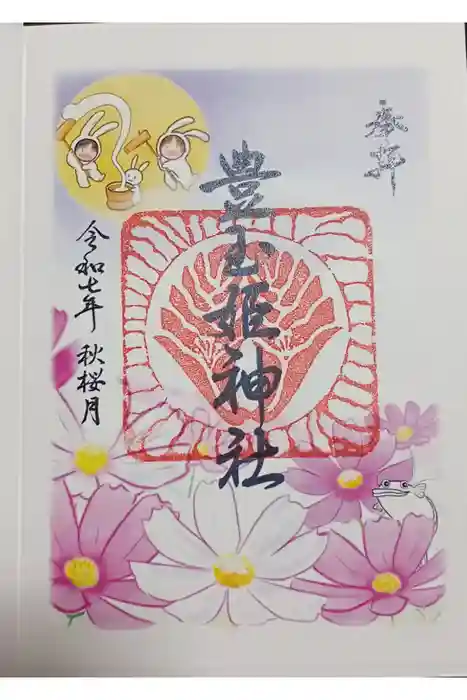 奉拝
豊玉姫神社
令和七年 秋桜月